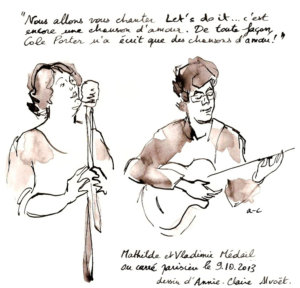 "Nous allons vous chanter Let's do it... c'est
encore une chanson d'amour. De toute façon
Cole Porter n'a écrit que des chansons d'amour!"
a-c
Mathilde et Vladimir Médail
au carré parisien le 9.10.2013
dessin d'Annie-Claire Alvoët.